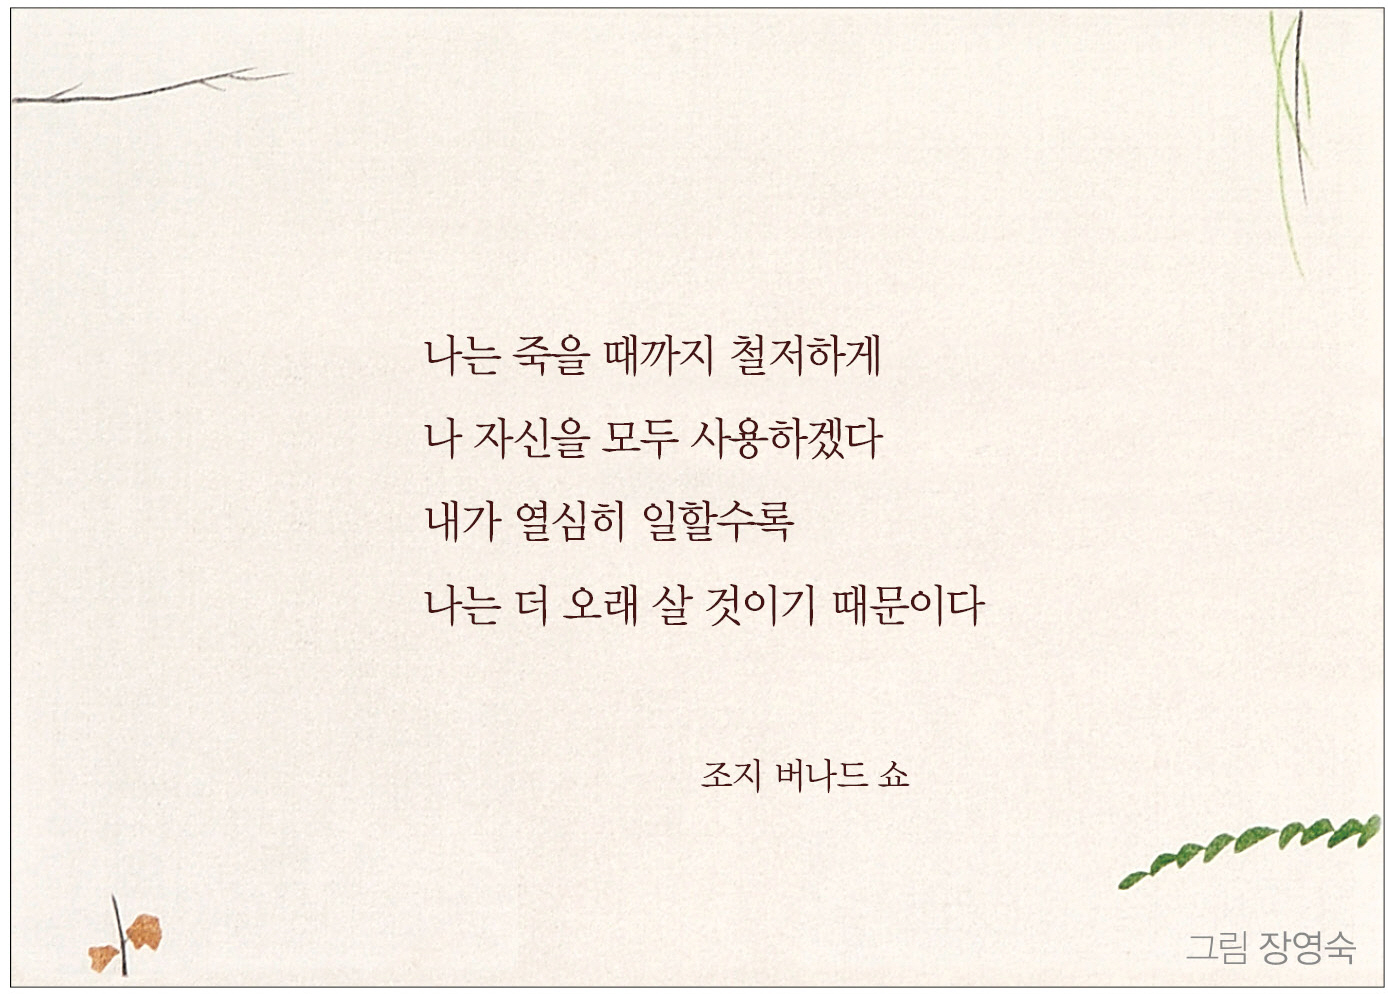 나는 죽을 때까지 철저하게
나 자신을 모두 사용하겠다
내가 열심히 일할수록
나는 더 오래 살 것이기 때문이다
조지 버나드 쇼
그림 장영숙